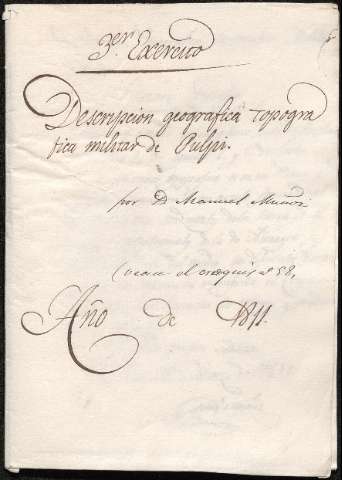 3er Exercito
Descripcion geografica topogra
fica militar de Pulpi.
por Dn Manuel Muñoz
(vease el croquis nº 58,
Año de 1811.